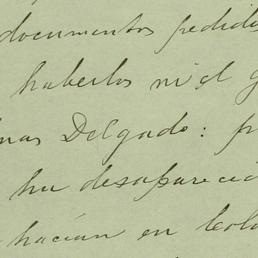 documentos pedid
haberlos ni el g
nas Delgado: p
ha desapareci
hacían en